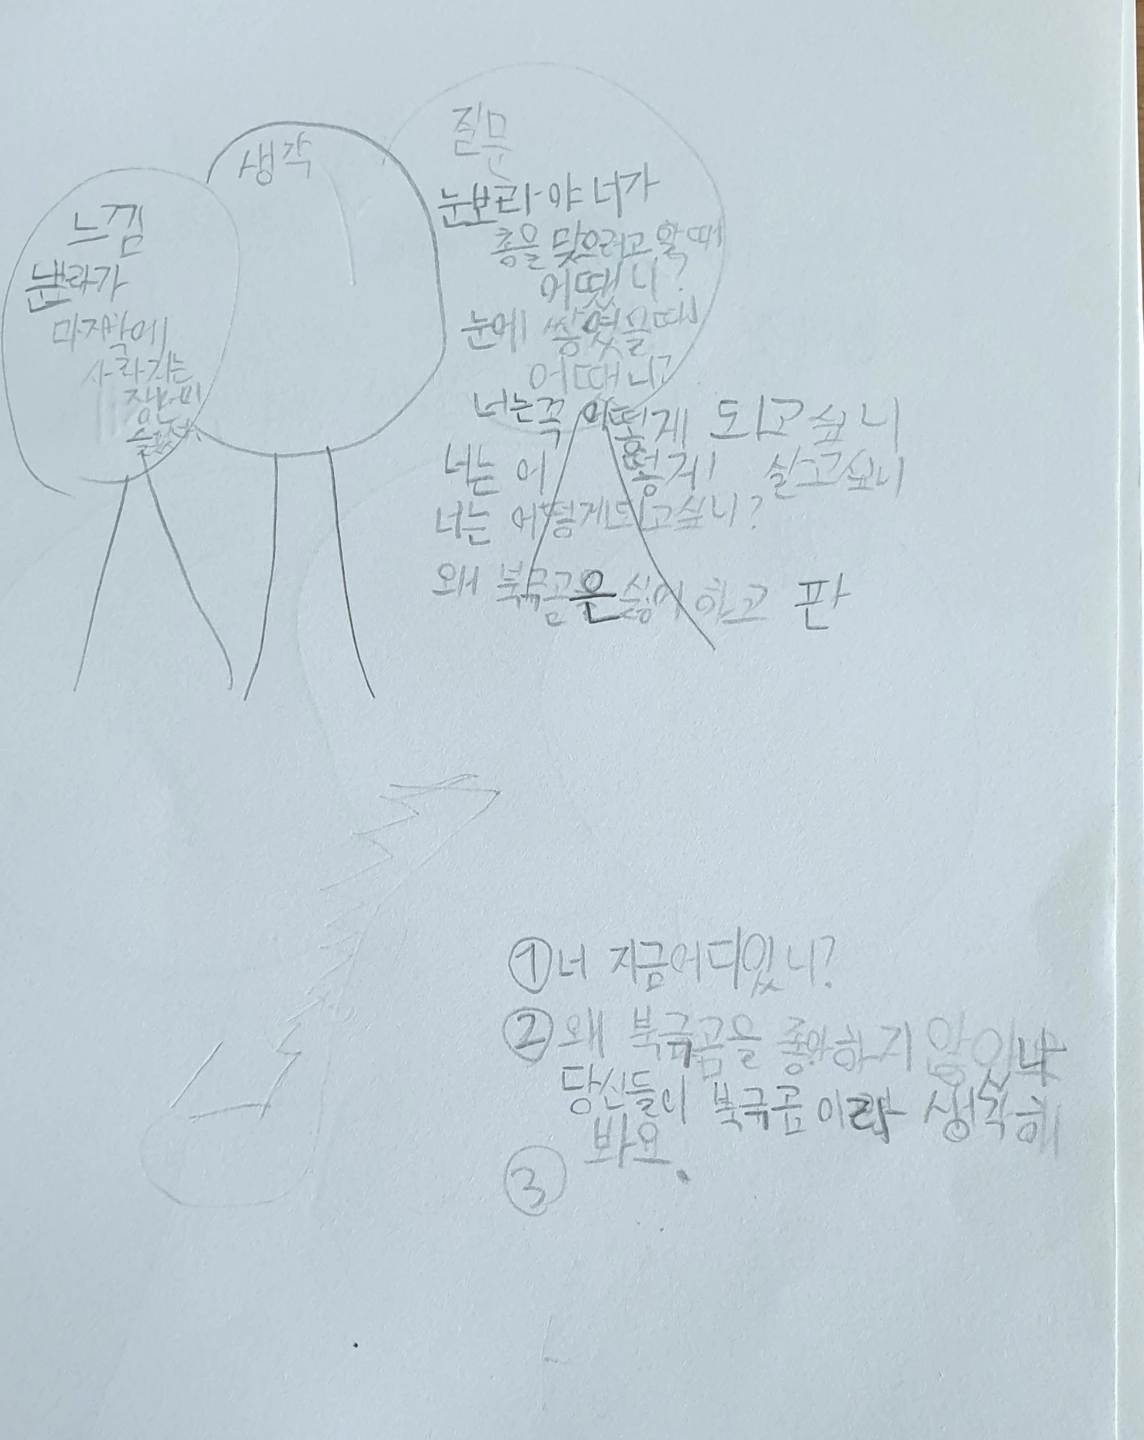 느낌
눈보라가
마지막에
사라지는
장면이
생각
질문
눈보라야 너가
총을 맞으려고 할 때
어땠니?
눈에 쌓였을때
어때니?
너는 꼭 어떻게 되고싶니
너는 어떻게 살고싶니
너는 어떻게되고싶니?
왜 북극곰은 싫어하고 판
① 너 지금어디있니?
② 왜 북극곰을 좋아하지 않았냐
당신들이 북극곰이라 생각해
봐요.
③